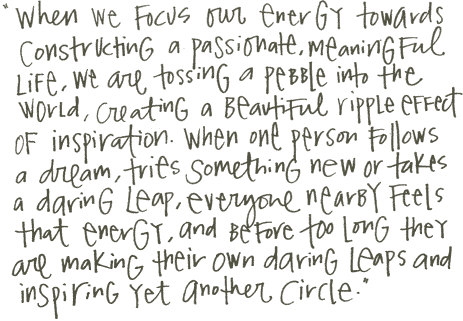 "When we focus our energy towards
constructing a passionate, meaningful
life, we are tossing a pebble into the
world, creating a beautiful ripple effect
of inspiration. When one person follows
a dream, tries something new or takes
a daring leap, everyone nearby feels
that energy, and before too long they
are making their own daring leaps and
inspiring yet another circle."